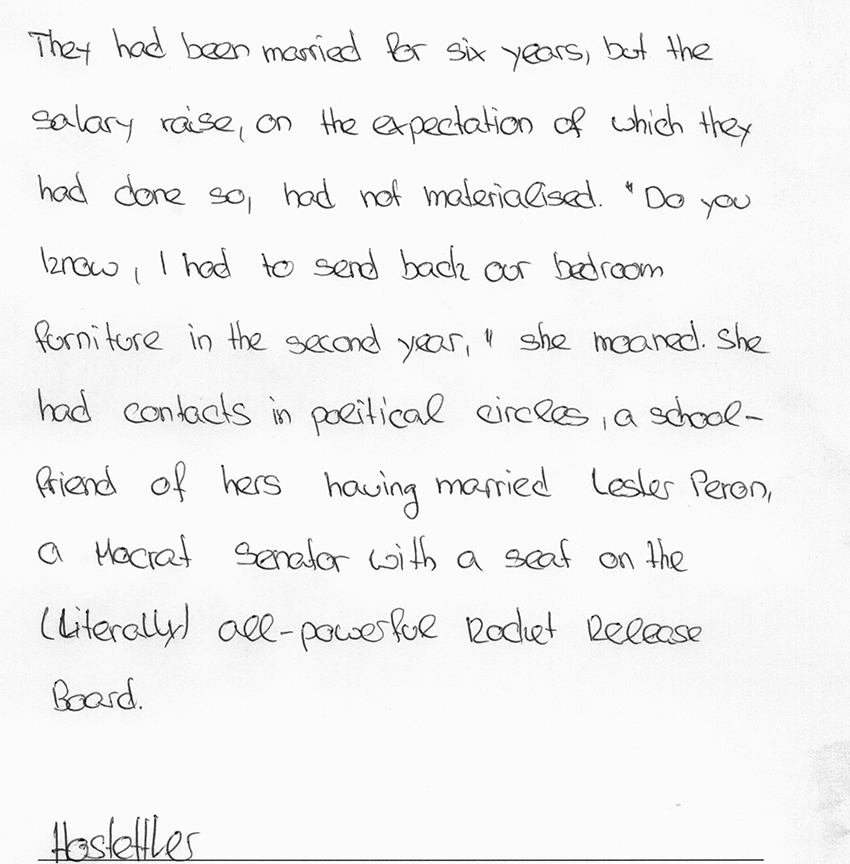 They had been married for six years, but the
salary raise, on the expectation of which they
had done so, had not materialised. "Do you
know, I had to send back our bedroom
furniture in the second year," she moaned. She
had contacts in political circles, a school-
friend of hers having married Lester Peron,
a Mocrat Senator with a seat on the
(Literally) all-powerful Rocket Release
Board.
Hostettler